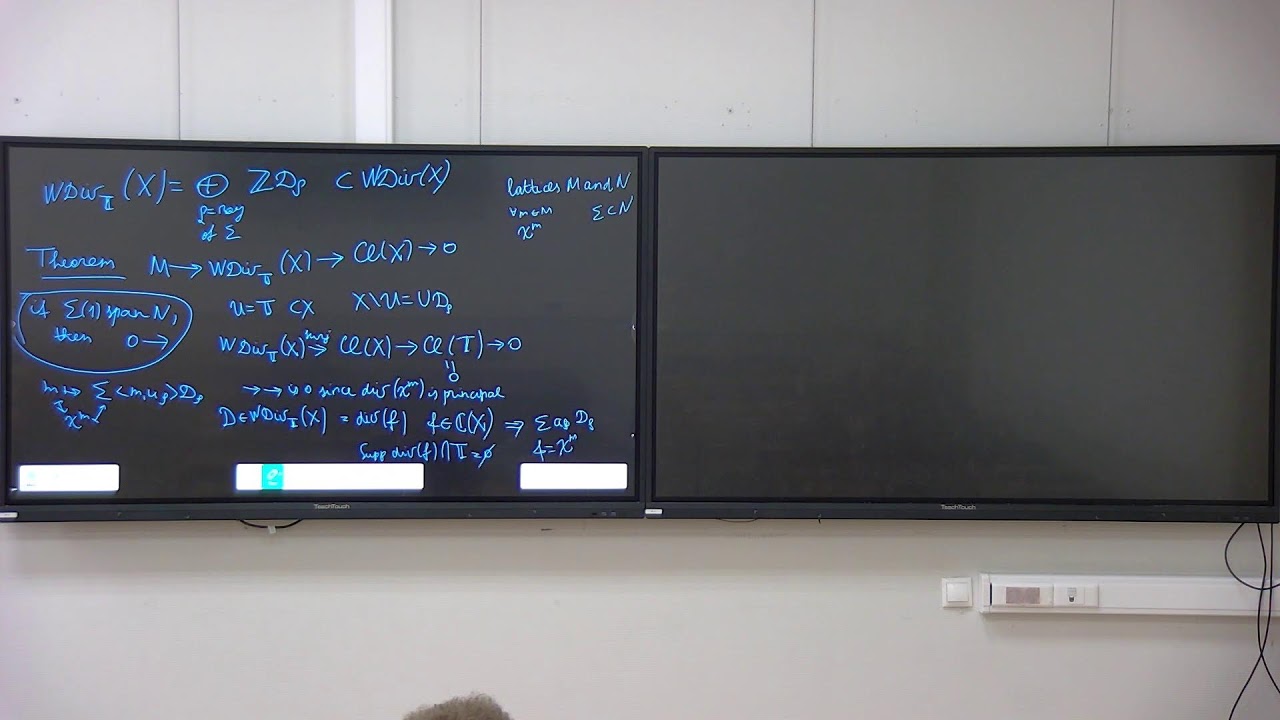 WDiv_𝕋(X) = ⊕ ℤD_ρ ⊂ WDiv(X)
ρ=ray
of Σ
lattices M and N
∀m∈M Σ⊂N
χ^m
Theorem M → WDiv_𝕋(X) → Cl(X) → 0
if Σ(1) span N,
then 0 →
U=𝕋 ⊂X X\U=∪D_ρ
WDiv_𝕋(X) →^surj Cl(X) → Cl(𝕋) → 0
=
0
m ↦ Σ<m,u_ρ>D_ρ
χ^m
→→ is 0 since div(χ^m) is principal
D∈WDiv_𝕋(X) = div(f) f∈ℂ(X) ⇒ Σa_ρ D_ρ
Supp div(f)∩𝕋=∅ f=χ^m
TeachTouch
TeachTouch